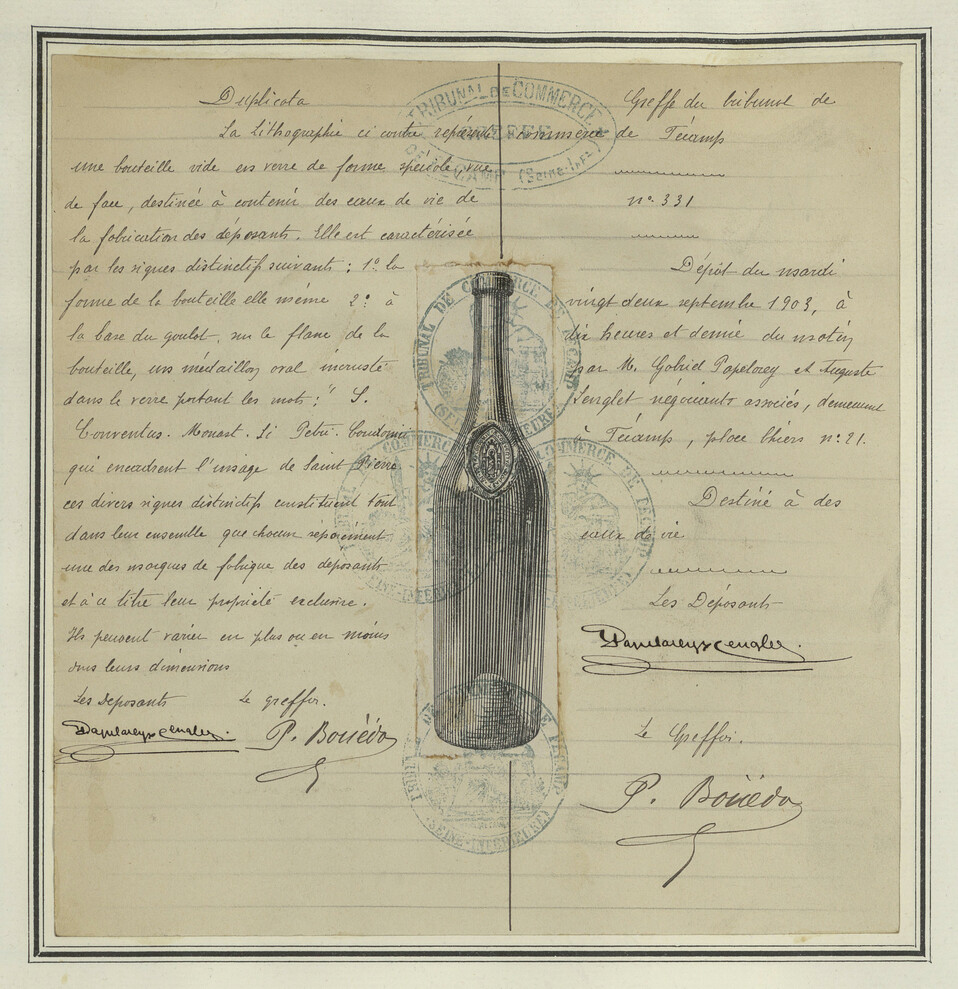 Duplicata
La Lithographie ci contre représente
une bouteille vide en verre de forme spéciale, vue
de face, destinée à contenir des eaux de vie de
la fabrication des déposants. Elle est caractérisée
par les signes distinctifs suivants : 1º la
forme de la bouteille elle même 2º à
la base du goulot, sur le flanc de la
bouteille, un médaillon oval incrusté
dans le verre portant les mots : " S.
Conventus. Monast. Si Petri.
qui encadrent l'image de Saint Pierre
ces divers signes distinctifs constituent tout
dans leur ensemble que chacun séparément
une des marques de fabrique des déposants
et à ce titre leur propriété exclusive.
Ils peuvent varier en plus ou en moins
dans leurs dimensions
Les Déposants Le greffier.
Papelorey & Lenglet. P. Bouëdo
TRIBUNAL DE COMMERCE
GREFFE
DE FÉCAMP (Seine-Infre)
TRIBUNAL DE COMMERCE DE FÉCAMP
(SEINE-INFÉRIEURE)
TRIBUNAL DE COMMERCE DE FÉCAMP
(SEINE-INFÉRIEURE)
TRIBUNAL DE COMMERCE DE FÉCAMP
(SEINE-INFÉRIEURE)
TRIBUNAL DE COMMERCE DE FÉCAMP
(SEINE-INFÉRIEURE)
Greffe du tribunal de
commerce de Fécamp
nº 331
Dépôt du mardi
vingt deux septembre 1903, à
dix heures et demie du matin
par M. Gabriel Papelorey et Auguste
Lenglet négociants associés, demeurant
à Fécamp, place thiers nº 21.
Destiné à des
eaux de vie
Les Déposants
Papelorey & Lenglet.
Le Greffier.
P. Bouëdo